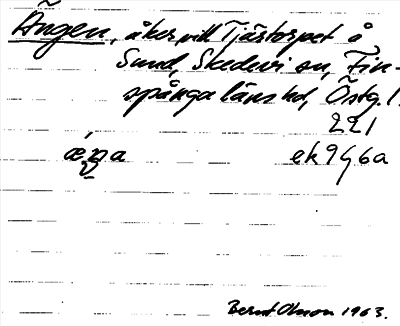 Ängen, åker, vill Tjärtorpet å
Sund, Skedevi sn, Fin-
spånga läns hd, Östg. l.
221
æŋa ek 9g6a
Bernt Olsson 1963.